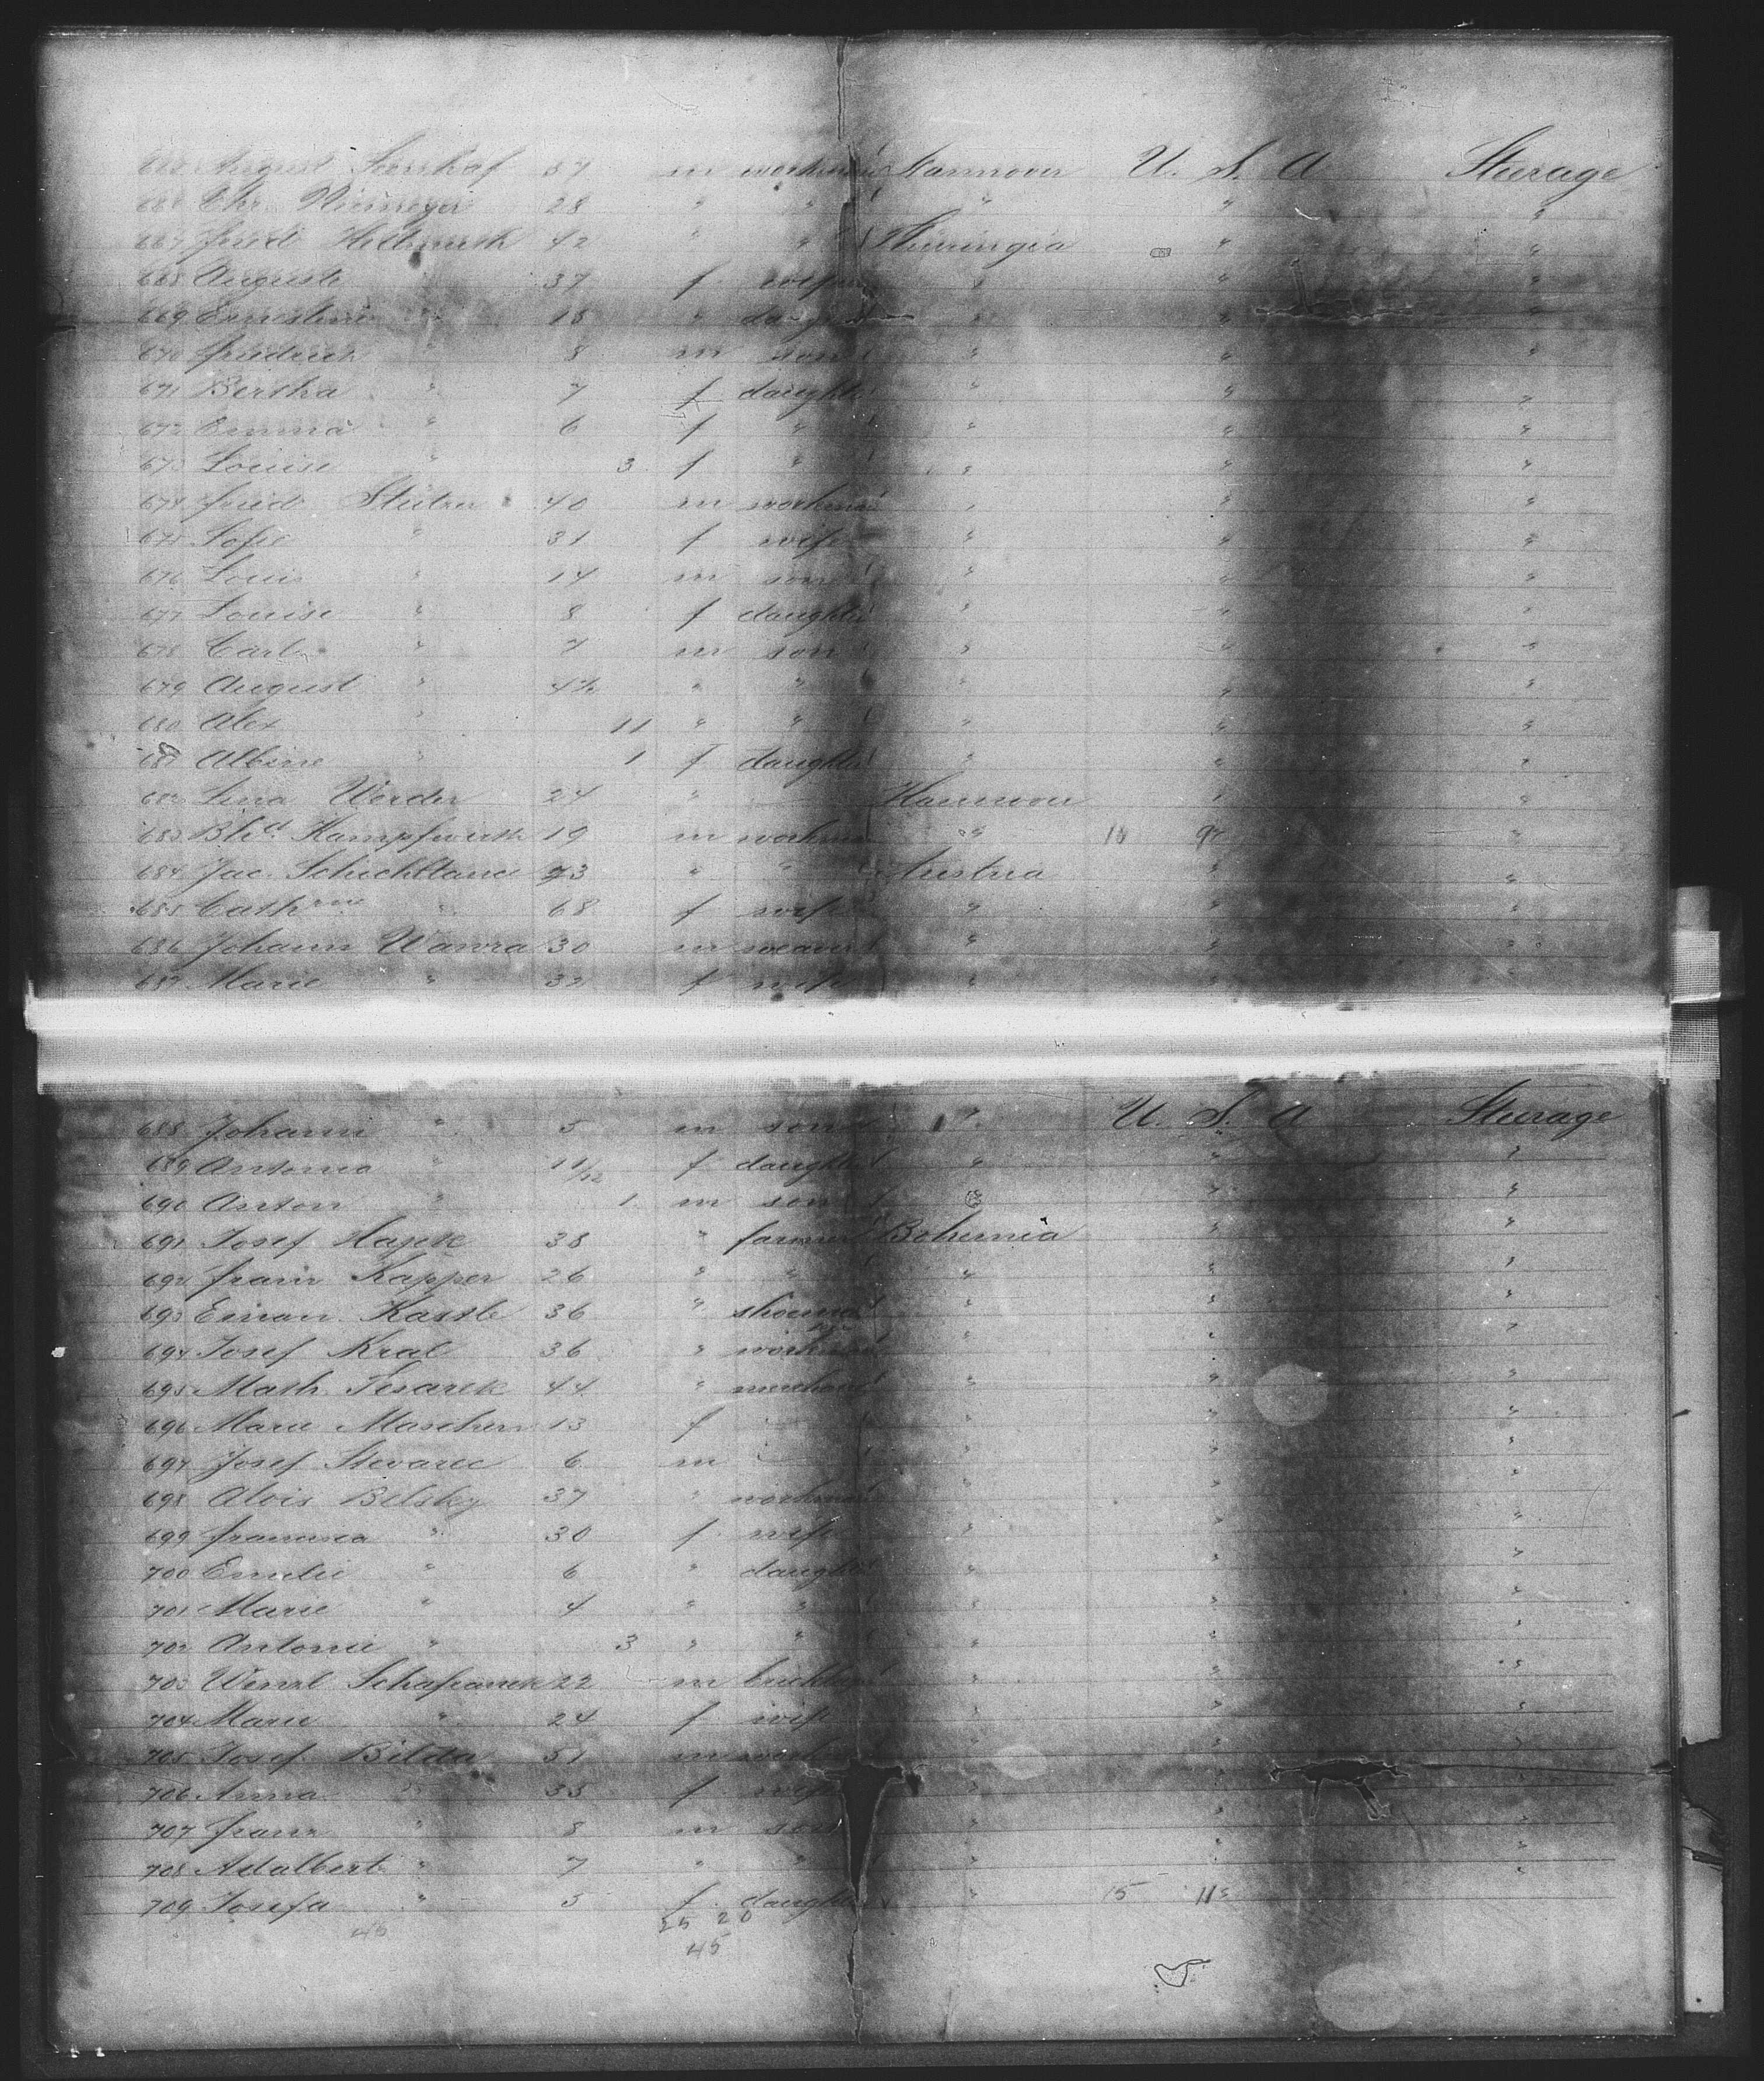 August 37 m workman Hannover U. S. A Steerage
Chr. Niemeyer 28 " " " " "
667 Fried Hellmuth 42 " " Thuringia " "
668 Auguste " 37 f wife " " "
669 Ernestine " 18 " daughter " " "
670 Friedrich " 8 m son " " "
671 Bertha " 7 f daughter " " "
672 Emma " 6 f " " " "
673 Louise " 3 f " " " "
674 Fried 40 m workman " " "
675 Sofie " 31 f wife " " "
676 Louis " 14 m son " " "
677 Louise " 8 f daughter " " "
678 Carl " 7 m son " " "
679 August " 4 " " " " "
680 Alex " 11 " " " " "
681 Albine " 1 f daughter " " "
682 Lina Werder 24 " Hannover " "
683 19 m workman " 10 97 "
684 Jac. 73 " " Austria " "
685 Cathrine " 68 f wife " " "
686 Johann Wawra 30 m weaver " " "
687 Marie " 32 f wife " " "
688 Johann " 5 m son " U. S. A Steerage
689 Antonia " 11/12 f daughter " " "
690 Anton " 1 m son " " "
691 Josef Hajek 38 " farmer Bohemia " "
692 Franz Kapper 26 " " " " "
693 36 " shoemaker " " "
694 Josef Kral 36 " workman " " "
695 Math. Tesarek 44 " merchant " " "
696 Marie 13 f " " "
697 Josef 6 m " " "
698 Alois Belsky 37 " workman " " "
699 Francisca " 30 f wife " " "
700 Emilie " 6 " daughter " " "
701 Marie " 4 " " " " "
702 Antonie " 3 " " " " "
703 Wenzl 22 m " " "
704 Marie " 24 f wife " " "
705 Josef Bilda 51 m workman " " "
706 Anna " 35 f wife " " "
707 Franz " 8 m son " " "
708 Adalbert " 7 " " " " "
709 Josefa " 5 f daughter " 15 11
45 25 20
45